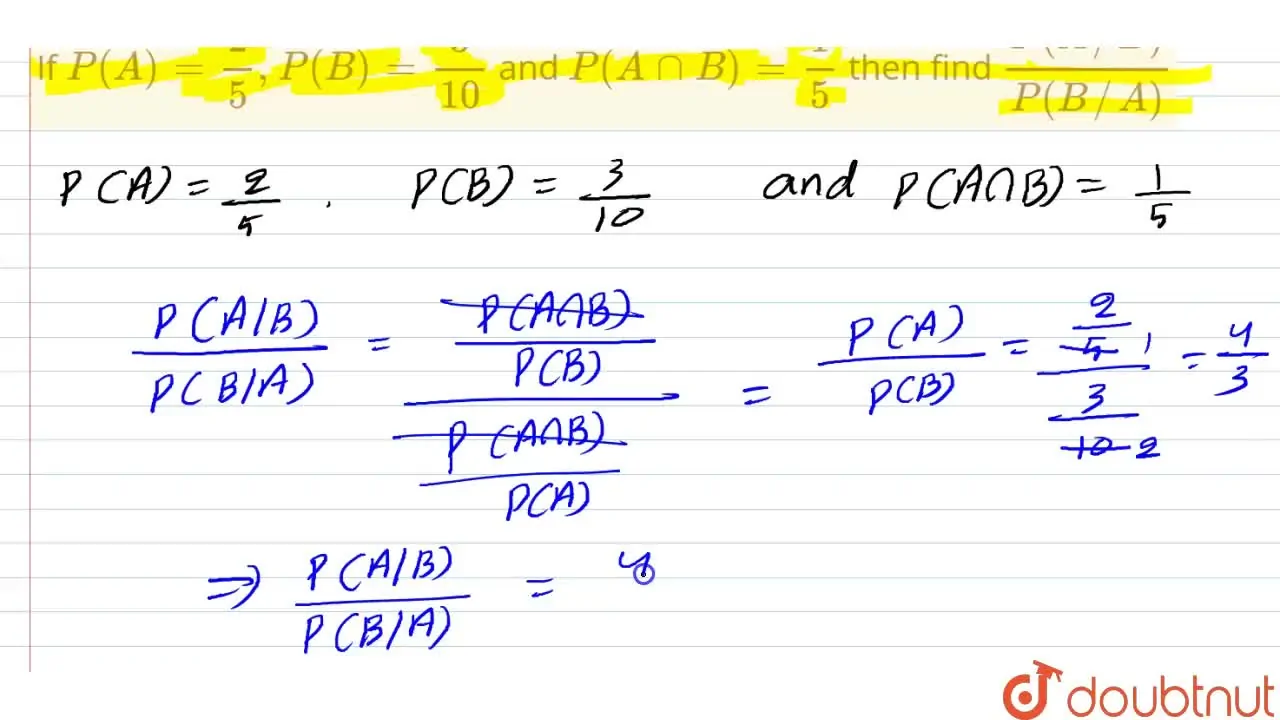 If P(A) = 2/5, P(B) = 3/10 and P(A ∩ B) = 1/5 then find P(A/B)/P(B/A)
P(A) = 2/5 . P(B) = 3/10 and P(A∩B) = 1/5
P(A/B)/P(B/A) = (P(A∩B)/P(B))/(P(A∩B)/P(A)) = P(A)/P(B) = (2/5 1)/(3/10 2) = 4/3
⇒ P(A/B)/P(B/A) = 4
doubtnut